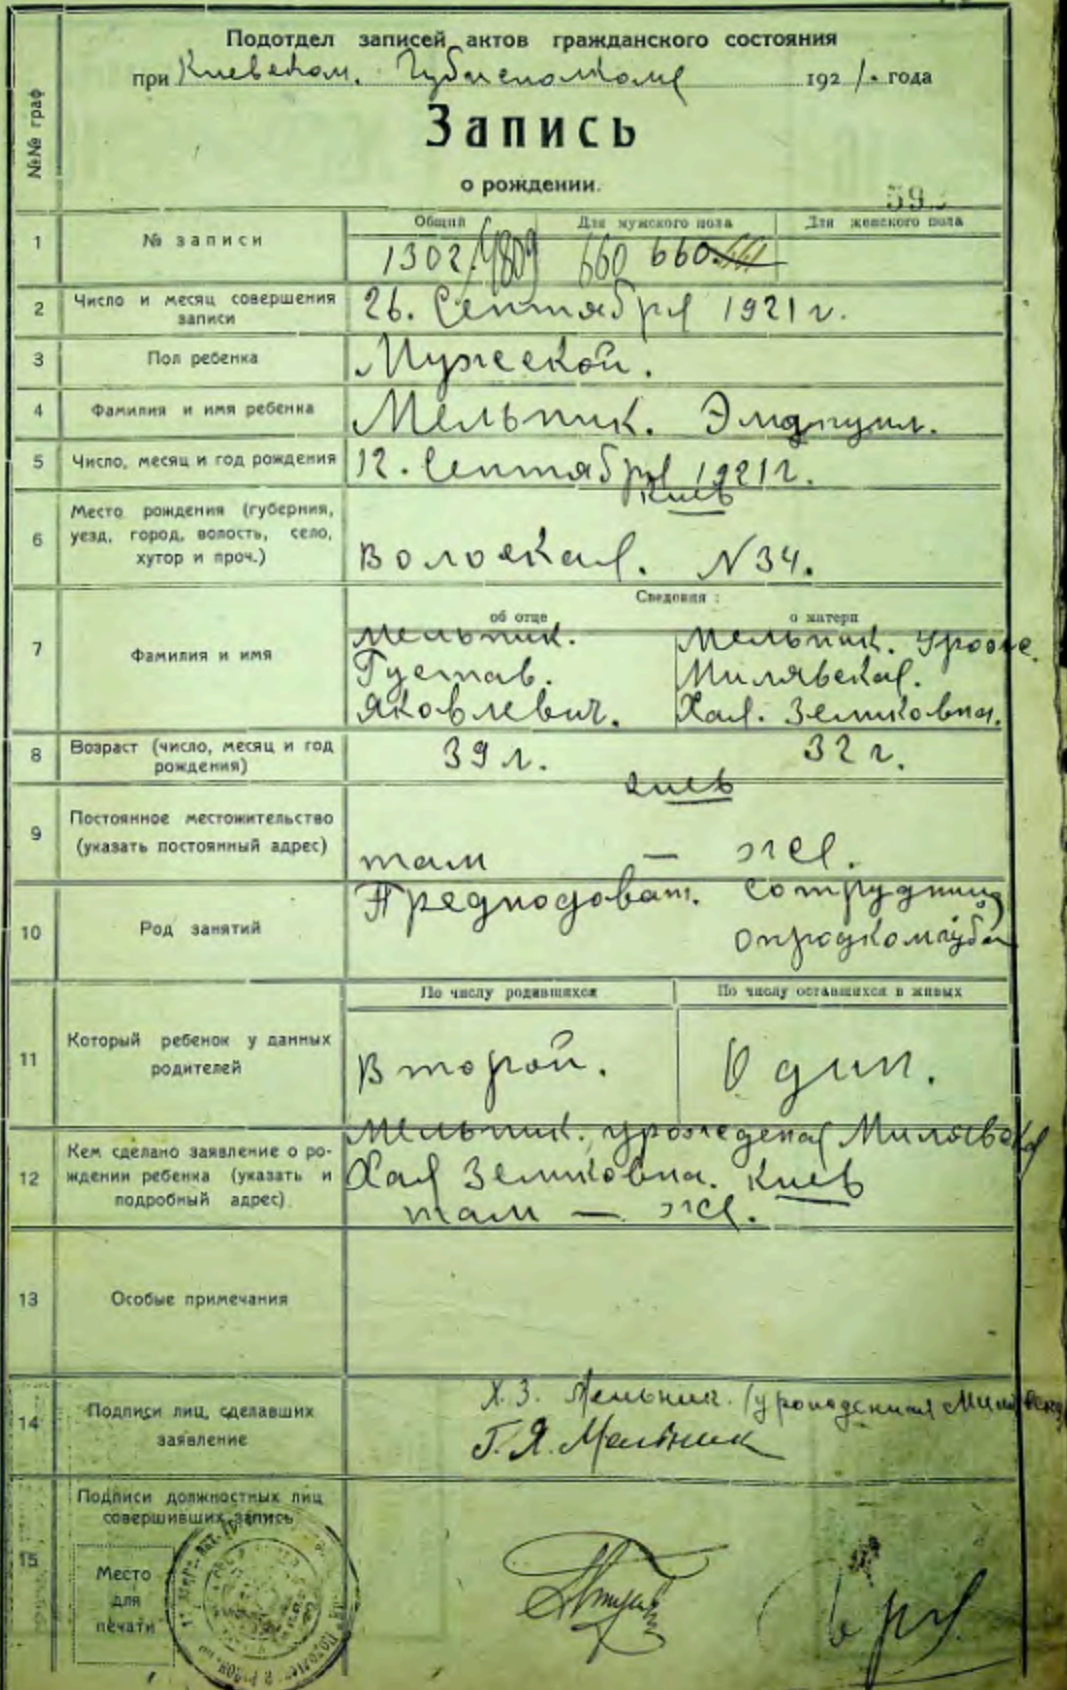 Подотдел записей актов гражданского состояния
при Киевском. Губисполкоме 1921. года
Запись
о рождении.
№№ граф
59
Общий Для мужского пола Для женского пола
1 № записи 1302. 4809 660 660.
2 Число и месяц совершения записи 26. Сентября 1921 г.
3 Пол ребенка Мужской.
4 Фамилия и имя ребенка Мельник. Эмануил.
5 Число, месяц и год рождения 12. Сентября 1921 г.
6 Место рождения (губерния, уезд, город, волость, село, хутор и проч.)
Киев
Волоская. N 34.
Сведения:
об отце о матери
7 Фамилия и имя
Мельник. Мельник. Уроже.
Густав. Милявская.
Яковлевич. Хая. Зельковна.
8 Возраст (число, месяц и год рождения) 39 л. 32 г.
9 Постоянное местожительство (указать постоянный адрес)
Киев
там — же.
10 Род занятий
Преподоват. Сотрудниц
опродкомгуба
По числу родившихся По числу оставшихся в живых
11 Который ребенок у данных родителей Второй. Один.
12 Кем сделано заявление о рождении ребенка (указать и подробный адрес)
Мельник. урожеденая Милявска
Хая Зельковна. Киев
там — же.
13 Особые примечания
14 Подписи лиц, сделавших заявление
Х. З. Мельник. (урожденная Милявска
Г. Я. Мельник
15 Подписи должностных лиц совершивших запись
Место
для
печати